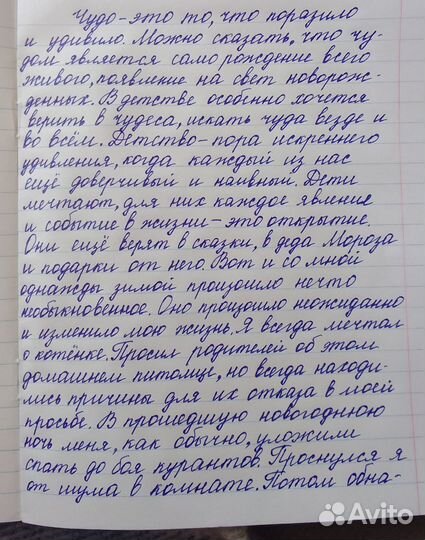 Чудо-это то, что поразило
и удивило. Можно сказать, что чу-
дом является само рождение всего
живого, появление на свет новорож-
денных. В детстве особенно хочется
верить в чудеса, искать чуда везде и
во всём. Детство-пора искреннего
удивления, когда каждый из нас
ещё доверчивый и наивный. Дети
мечтают, для них каждое явление
и событие в жизни-это открытие.
Они ещё верят в сказки, в деда Мороза
и подарки от него. Вот и со мной
однажды зимой произошло нечто
необыкновенное. Оно произошло неожиданно
и изменило мою жизнь. Я всегда мечтал
о котёнке. Просил родителей об этом
домашнем питомце, но всегда находи-
лись причины для их отказа в моей
просьбе. В прошедшую новогоднюю
ночь меня, как обычно, уложили
спать до боя курантов. Проснулся я
от шума в комнате. Потом обна-
Avito